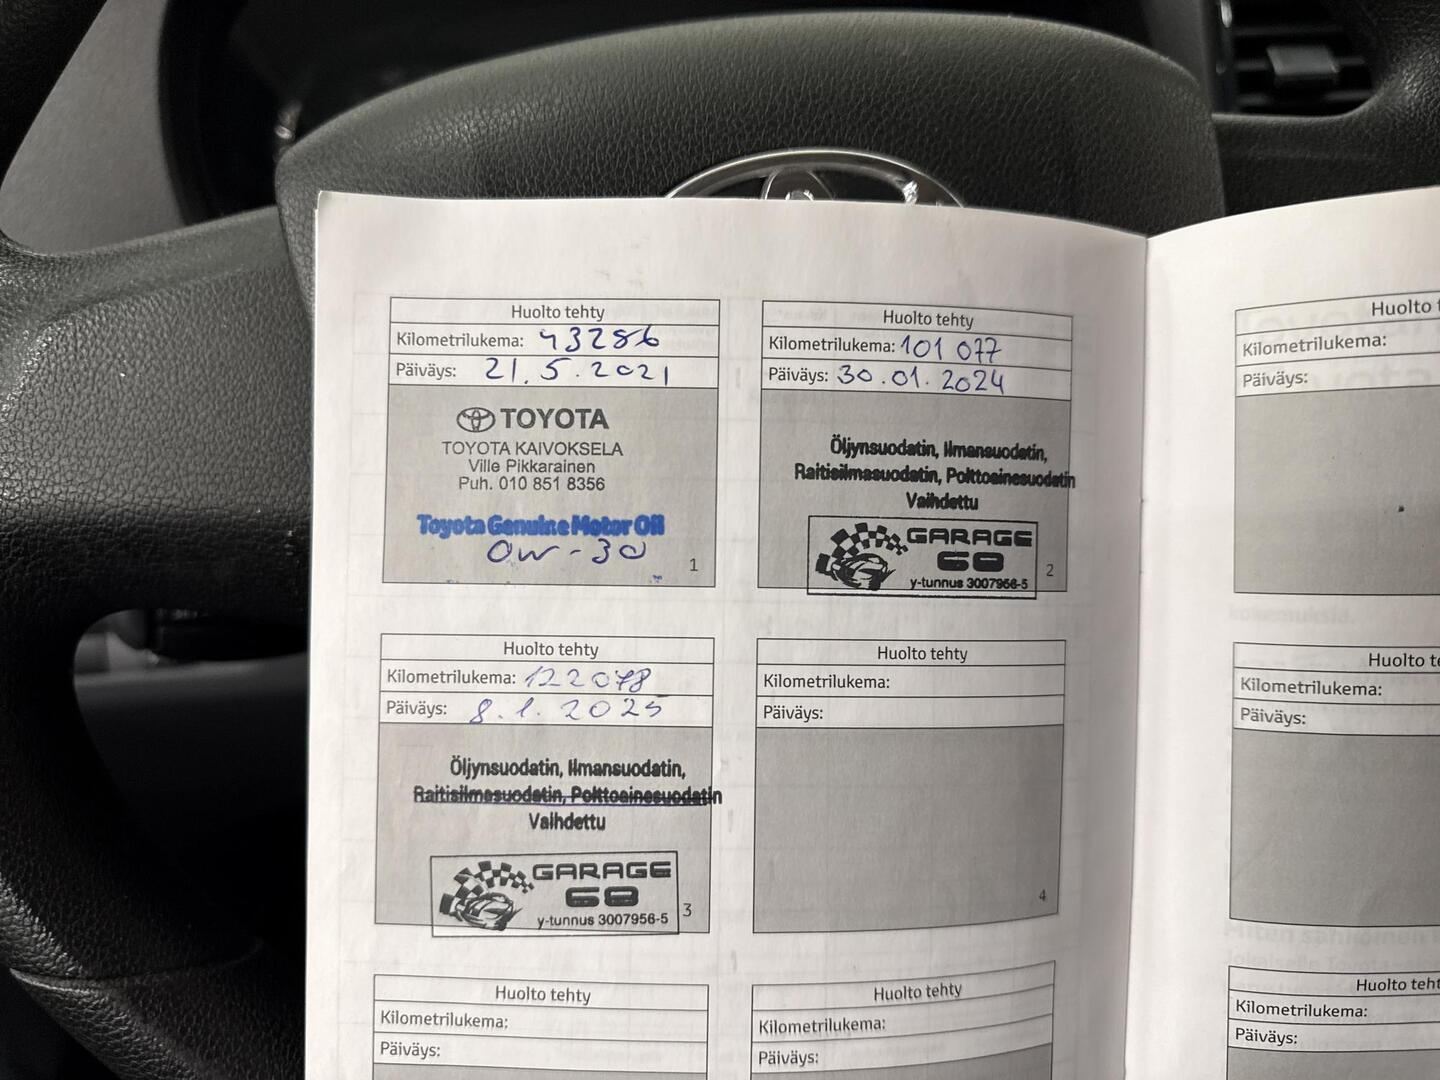 Huolto tehty
Kilometrilukema: 43286
Päiväys: 21.5.2021
TOYOTA
TOYOTA KAIVOKSELA
Ville Pikkarainen
Puh. 010 851 8356
Toyota Genuine Motor Oil
0w-30
1
Huolto tehty
Kilometrilukema: 101 077
Päiväys: 30.01.2024
Öljynsuodatin, Ilmansuodatin,
Raitisilmasuodatin, Polttoainesuodatin
Vaihdettu
GARAGE
68
y-tunnus 3007956-5
2
Huolto tehty
Kilometrilukema: 122078
Päiväys: 8.1.2025
Öljynsuodatin, Ilmansuodatin,
Raitisilmasuodatin, Polttoainesuodatin
Vaihdettu
GARAGE
68
y-tunnus 3007956-5
3
Huolto tehty
Kilometrilukema:
Päiväys:
4
Huolto tehty
Kilometrilukema:
Päiväys:
Huolto tehty
Kilometrilukema:
Päiväys:
Huolto
Kilometrilukema:
Päiväys:
Huolto
Kilometrilukema:
Päiväys:
Huolto
Kilometrilukema:
Päiväys: